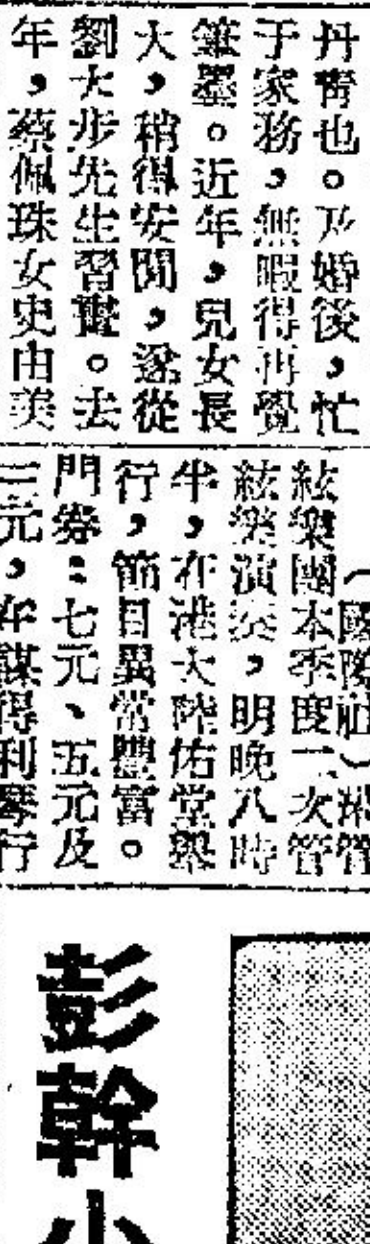 丹青也。及婚後，忙
于家務，無暇得再覺
筆墨。近年，兒女長
大，稍得安閒，遂從
劉大步先生習畫。去
年，蔡佩珠女史由美
（國際社）港管
絃樂團本季度二次管
絃樂演奏，明晚八時
半，在港大陸佑堂舉
行，節目異常豐富。
門券：七元、五元及
三元，在謀得利琴行
彭幹